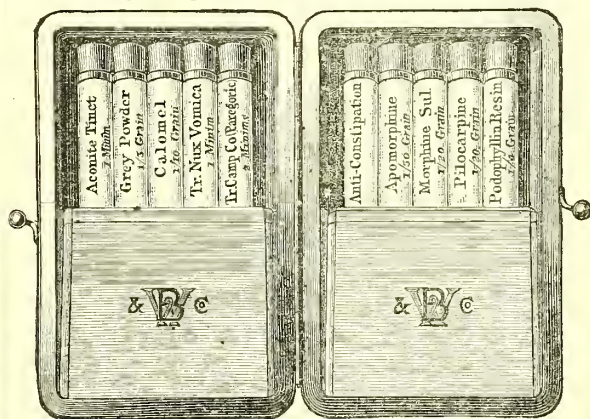 Aconite Tinct
1 Minim
Grey Powder
1/3 Grain
Calomel
1/10 Grain
Tr. Nux Vomica
1 Minim
Tr. Camp Co/Paregoric
2 Minims
Anti-Constipation
Apomorphine
1/50 Grain
Morphine Sul.
1/20 Grain
Pilocarpine
1/20 Grain
Podophyllin Resin
1/4 Grain
& BW Co
& BW Co